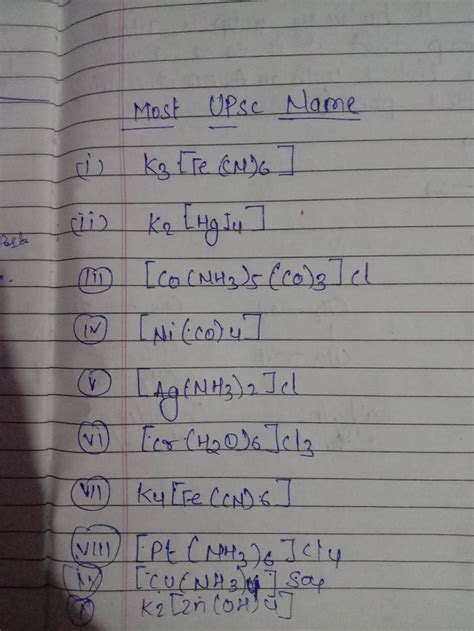 Most UPSC Name
(i) K3[Fe(CN)6]
(ii) K2[HgI4]
(iii) [Co(NH3)5(CO)3]Cl
(iv) [Ni(CO)4]
(v) [Ag(NH3)2]Cl
(vi) [Cr(H2O)6]Cl3
(vii) K4[Fe(CN)6]
(viii) [Pt(NH3)6]Cl4
[Cu(NH3)4]SO4
x K2[Zn(OH)4]